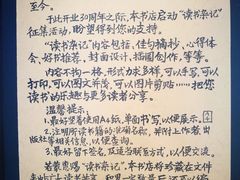 至今。
于此开业30周年之际，本书店启动“读书杂记”
征集活动，盼望得到您的支持。
“读书杂记”内容包括，佳句摘抄，心得体
会，好书推荐，封面设计，插图创作，等等。
内容不拘一格，形式力求多样，可以手写，可以
打印，可以图文并茂，可以图片剪贴……把您
读书的乐趣与更多读者分享。
温馨提示：
1.最好坚着使用A4纸，单面书写，以便展示。
2.注明所读书籍的准确名称，并附上作者、出
版社等相关信息，以便查询。
3.最好留下签名，及适当联系方式，以便交流。
若蒙惠赐“读书杂记”，本书店将珍藏在文件